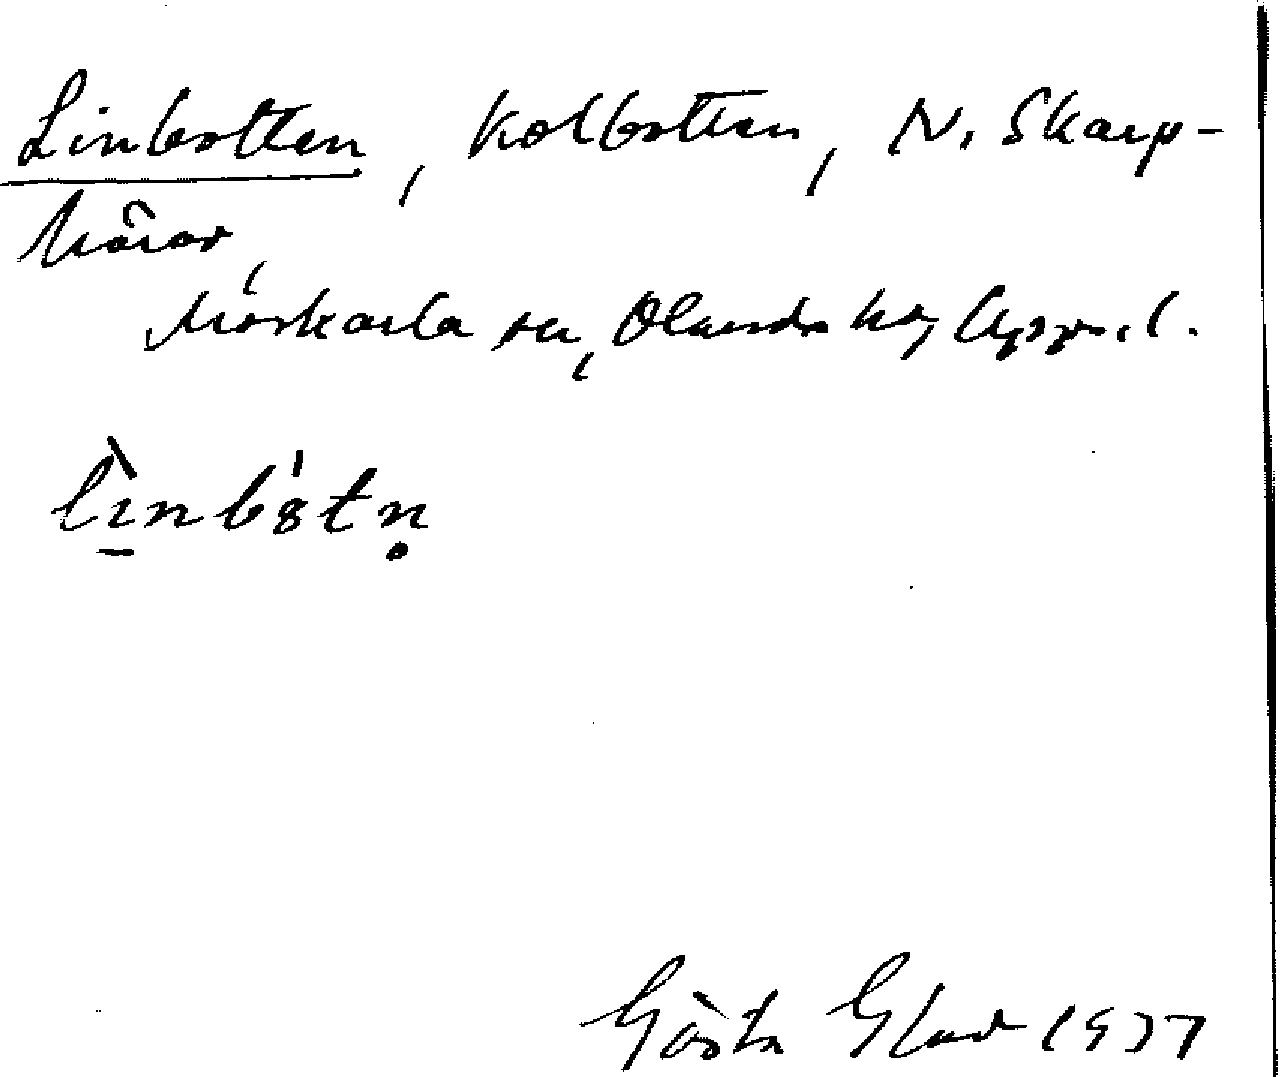 Linbotten, Kolbotten, N. Skarp-
kårar,
Morkarla sn, Olands hd, Upps. l.
lìnbȯtṇ
Gösta Glad 1937